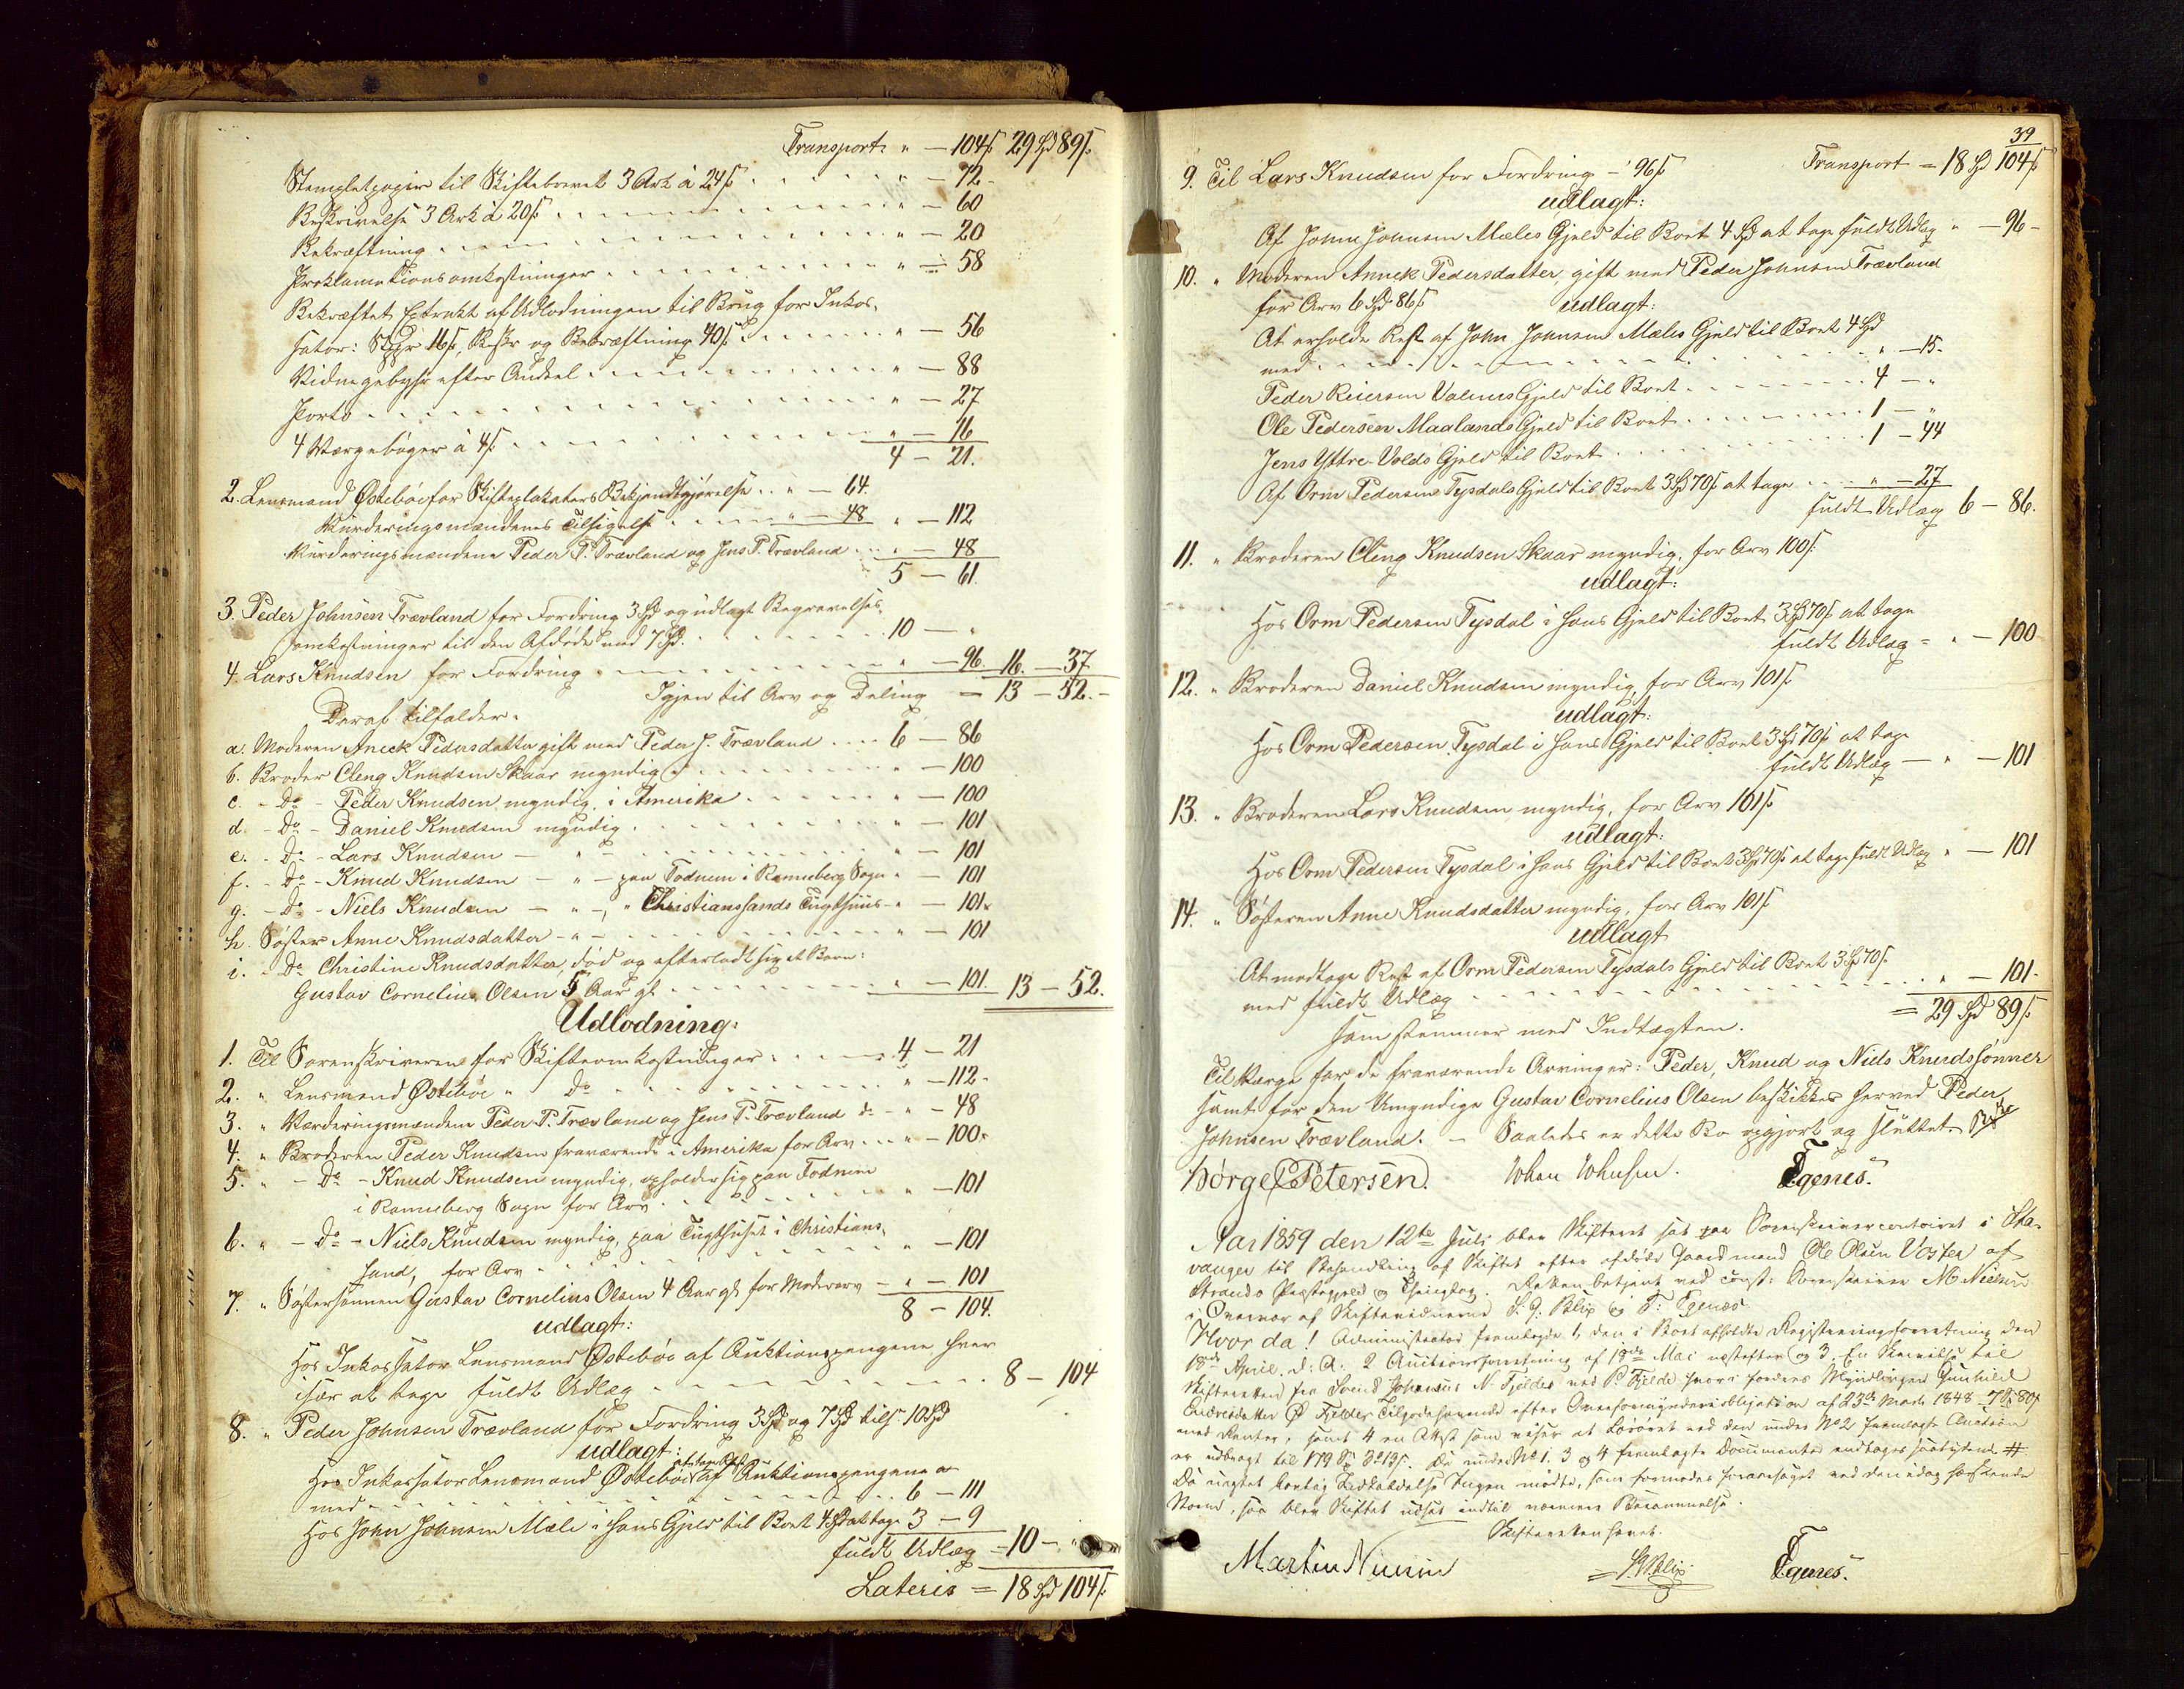 Transport: " — 104ß 29Spd 89ß.
Stemplet papir til Skiftebrevet 3 Ark à 24ß . . . " — 72
Beskrivelse 3 Ark à 20ß . . . " — 60
Bekræftning . . . " — 20
Proklamationsomkostninger . . . " — 58
Bekræftet Extrakt af Udlodningen til Brug for Inkas-
sator: Stpp 16ß, Beskr og Bekræftning 40ß . . . " — 56
Vidnegebyhr efter Andeel . . . " — 88
Porto . . . " — 27
4 Værgebøger à 4ß . . . " — 16
4 — 21.
2. Lensmand Østebøe for Skifteplakaters Bekjendtgjørelse . . " — 64.
Vurderingsmændenes Tilsigelse . . . " — 48 " — 112
Vurderingsmændene Peder P. Trævland og Jens P. Trævland . . . " — 48
5 — 61.
3. Peder Johnsen Trævland for Fordring 3Spd og udlagt Begravelses-
omkostninger til den Afdøde med 7Spd. . . . 10 — "
4. Lars Knudsen for Fordring . . . " — 96. 16. — 37.
Igjen til Arv og Deling — 13 — 52. —
Deraf tilfalder:
a. Moderen Aneck Pedersdatter gift med Peder J. Trævland . . . . 6 — 86
b. Broder Cleng Knudsen Skaar myndig . . . " — 100
c. - Do - Peder Knudsen myndig, i Amerika . . . " — 100
d. - Do - Daniel Knudsen myndig . . . " — 101
e. - Do - Lars Knudsen — " — . . . " — 101
f. - Do - Knud Knudsen — " — paa Todnem i Ranneberg Sogn " — 101
g. - Do - Niels Knudsen — " —, " Christianssands Tugthuus - " — 101.
h. Søster Anne Knudsdatter - " - . . . " — 101
i. - Do Christine Knudsdatter, død og efterladt sig et Barn:
Gustav Cornelius Olsen 5 Aar gl . . . " — 101. 13 — 52.
Udlodning:
1. Til Sorenskriveren for Skifteomkostninger . . . 4 — 21
2. " Lensmand Østebøe " Do . . . " — 112.
3. " Vurderingsmændene Peder P. Trævland og Jens P. Trævland do - " — 48
4. " Broderen Peder Knudsen fraværende i Amerika for Arv . . . " — 100.
5. " - Do - Knud Knudsen myndig, opholder sig paa Todnem
i Ranneberg Sogn for Arv . . . " — 101
6. " - Do - Niels Knudsen myndig, paa Tugthuset i Christians-
sand, for Arv . . . " — 101
7. " Søstersønnen Gustav Cornelius Olsen 4 Aar gl for Moderarv — " — 101
8 — 104.
udlagt:
Hos Inkassator Lensmand Østebøe af Auktionspengene hver
især at tage fuldt Udlæg . . . 8 — 104
8. " Peder Johnsen Trævland for Fordring 3Spd og 7Spd tils 10Spd
udlagt:
Hos Inkassator Lensmand Østebøe at tage Rest af Auktionspengene
med . . . 6 — 111
Hos John Johnsen Mæle i hans Gjeld til Boet 4Spd at tage 3 — 9
fuldt Udlæg = 10 — "
Lateris = 18Spd 104ß.
39
Transport = 18Spd 104ß
9. Til Lars Knudsen for Fordring — 96ß
udlagt:
Af John Johnsen Mæles Gjeld til Boet 4Spd at tage fuldt Udlæg " — 96 -
10. " Moderen Anneck Pedersdatter, gift med Peder Johnsen Trævland
for Arv 6Spd 86ß udlagt:
At erholde Rest af John Johnsen Mæles Gjeld til Boet 4Spd
med . . . " — 15.
Peder Reiersen Valnes Gjeld til Boet . . . 4 — "
Ole Pedersen Maalands Gjeld til Boet . . . 1 — "
Jens Yttre-Volds Gjeld til Boet . . . 1 — 44
Af Orm Pedersen Tysdals Gjeld til Boet 3Spd 70ß at tage . . . " — 27
fuldt Udlæg 6 — 86.
11. " Broderen Cleng Knudsen Skaar myndig, for Arv 100ß
udlagt:
Hos Orm Pedersen Tysdal i hans Gjeld til Boet 3Spd 70ß at tage
fuldt Udlæg = " — 100
12. " Broderen Daniel Knudsen myndig, for Arv 101ß
udlagt:
Hos Orm Pedersen Tysdal i hans Gjeld til Boet 3Spd 70ß at tage
fuldt Udlæg — " — 101
13. " Broderen Lars Knudsen myndig, for Arv 101ß
udlagt:
Hos Orm Pedersen Tysdal i hans Gjeld til Boet 3Spd 70ß at tage fuldt Udlæg " — 101
14. " Søsteren Anne Knudsdatter myndig, for Arv 101ß
udlagt
At modtage Rest af Orm Pedersen Tysdals Gjeld til Boet 3Spd 70ß
med fuldt Udlæg . . . " — 101.
= 29Spd 89ß
som stemmer med Indtægten.
Til Værge for de fraværende Arvinger: Peder, Knud og Niels Knudssønner
samt for den Umyndige Gustav Cornelius Olsen beskikkes herved Peder
Johnsen Trævland. — Saaledes er dette Bo opgjort og sluttet.
Børge Petersen. John Johnsen. Egenes.
Aar 1859 den 12te Juli blev Skifteret sat paa Sorenskrivercontoiret i Sta-
vanger til Behandling af Skiftet efter afdøde Gaardmand Ole Olsen Voster af
Strands Præstegjeld og Thinglag. Retten betjent ved const: Sorenskriver M. Nielsen
i Overvær af Skiftevidnerne S. G. Blix og T: Egenæs.
Hvor da! Administrator fremlagde 1, den i Boet afholdte Registreringsforretning den
18de April d. A. 2 Auctionsforretning af 18de Mai næstefter og 3. En Skrivelse til
Skifteretten fra Svend Johannes N. Fjelde ved P. Fjelde hvori fordres Myndlingen Gunhild
Endresdatter Ø Fjeldes Tilgodehavende efter Overformynderiobligation af 23de Marts 1848 7Spd 80ß
med Renter, samt 4 en Attest som viser at Løsøret ved den under No 2 fremlagte Auction
er udbragt til 179Spd 3# 19ß. De under No 1. 3 og 4 fremlagte Documenter modtages saalydende #
Da uagtet lovlig Indkaldelse Ingen mødte, som formodes foraarsaget ved den idag herskende
Storm, saa blev Skiftet udsat indtil nærmere Berammelse.
Skifteretten hævet.
Martin Nielsen S. Blix Egenes.